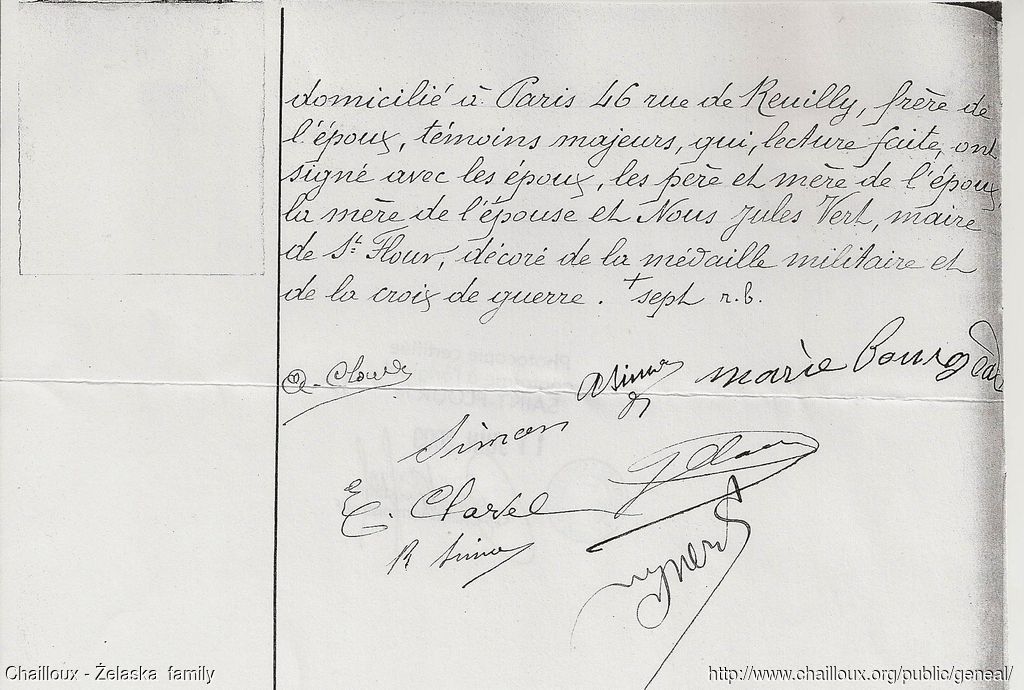 domicilié à Paris 46 rue de Reuilly, frère de
l'époux, témoins majeurs, qui, lecture faite, ont
signé avec les époux, les père et mère de l'époux,
la mère de l'épouse et Nous Jules Vert, maire
de St Flour, décoré de la médaille militaire et
de la croix de guerre. + sept r.b.
marie
Simon
E. Clavel
R Simon
Chailloux - Żelaska family
http://www.chailloux.org/public/geneal/